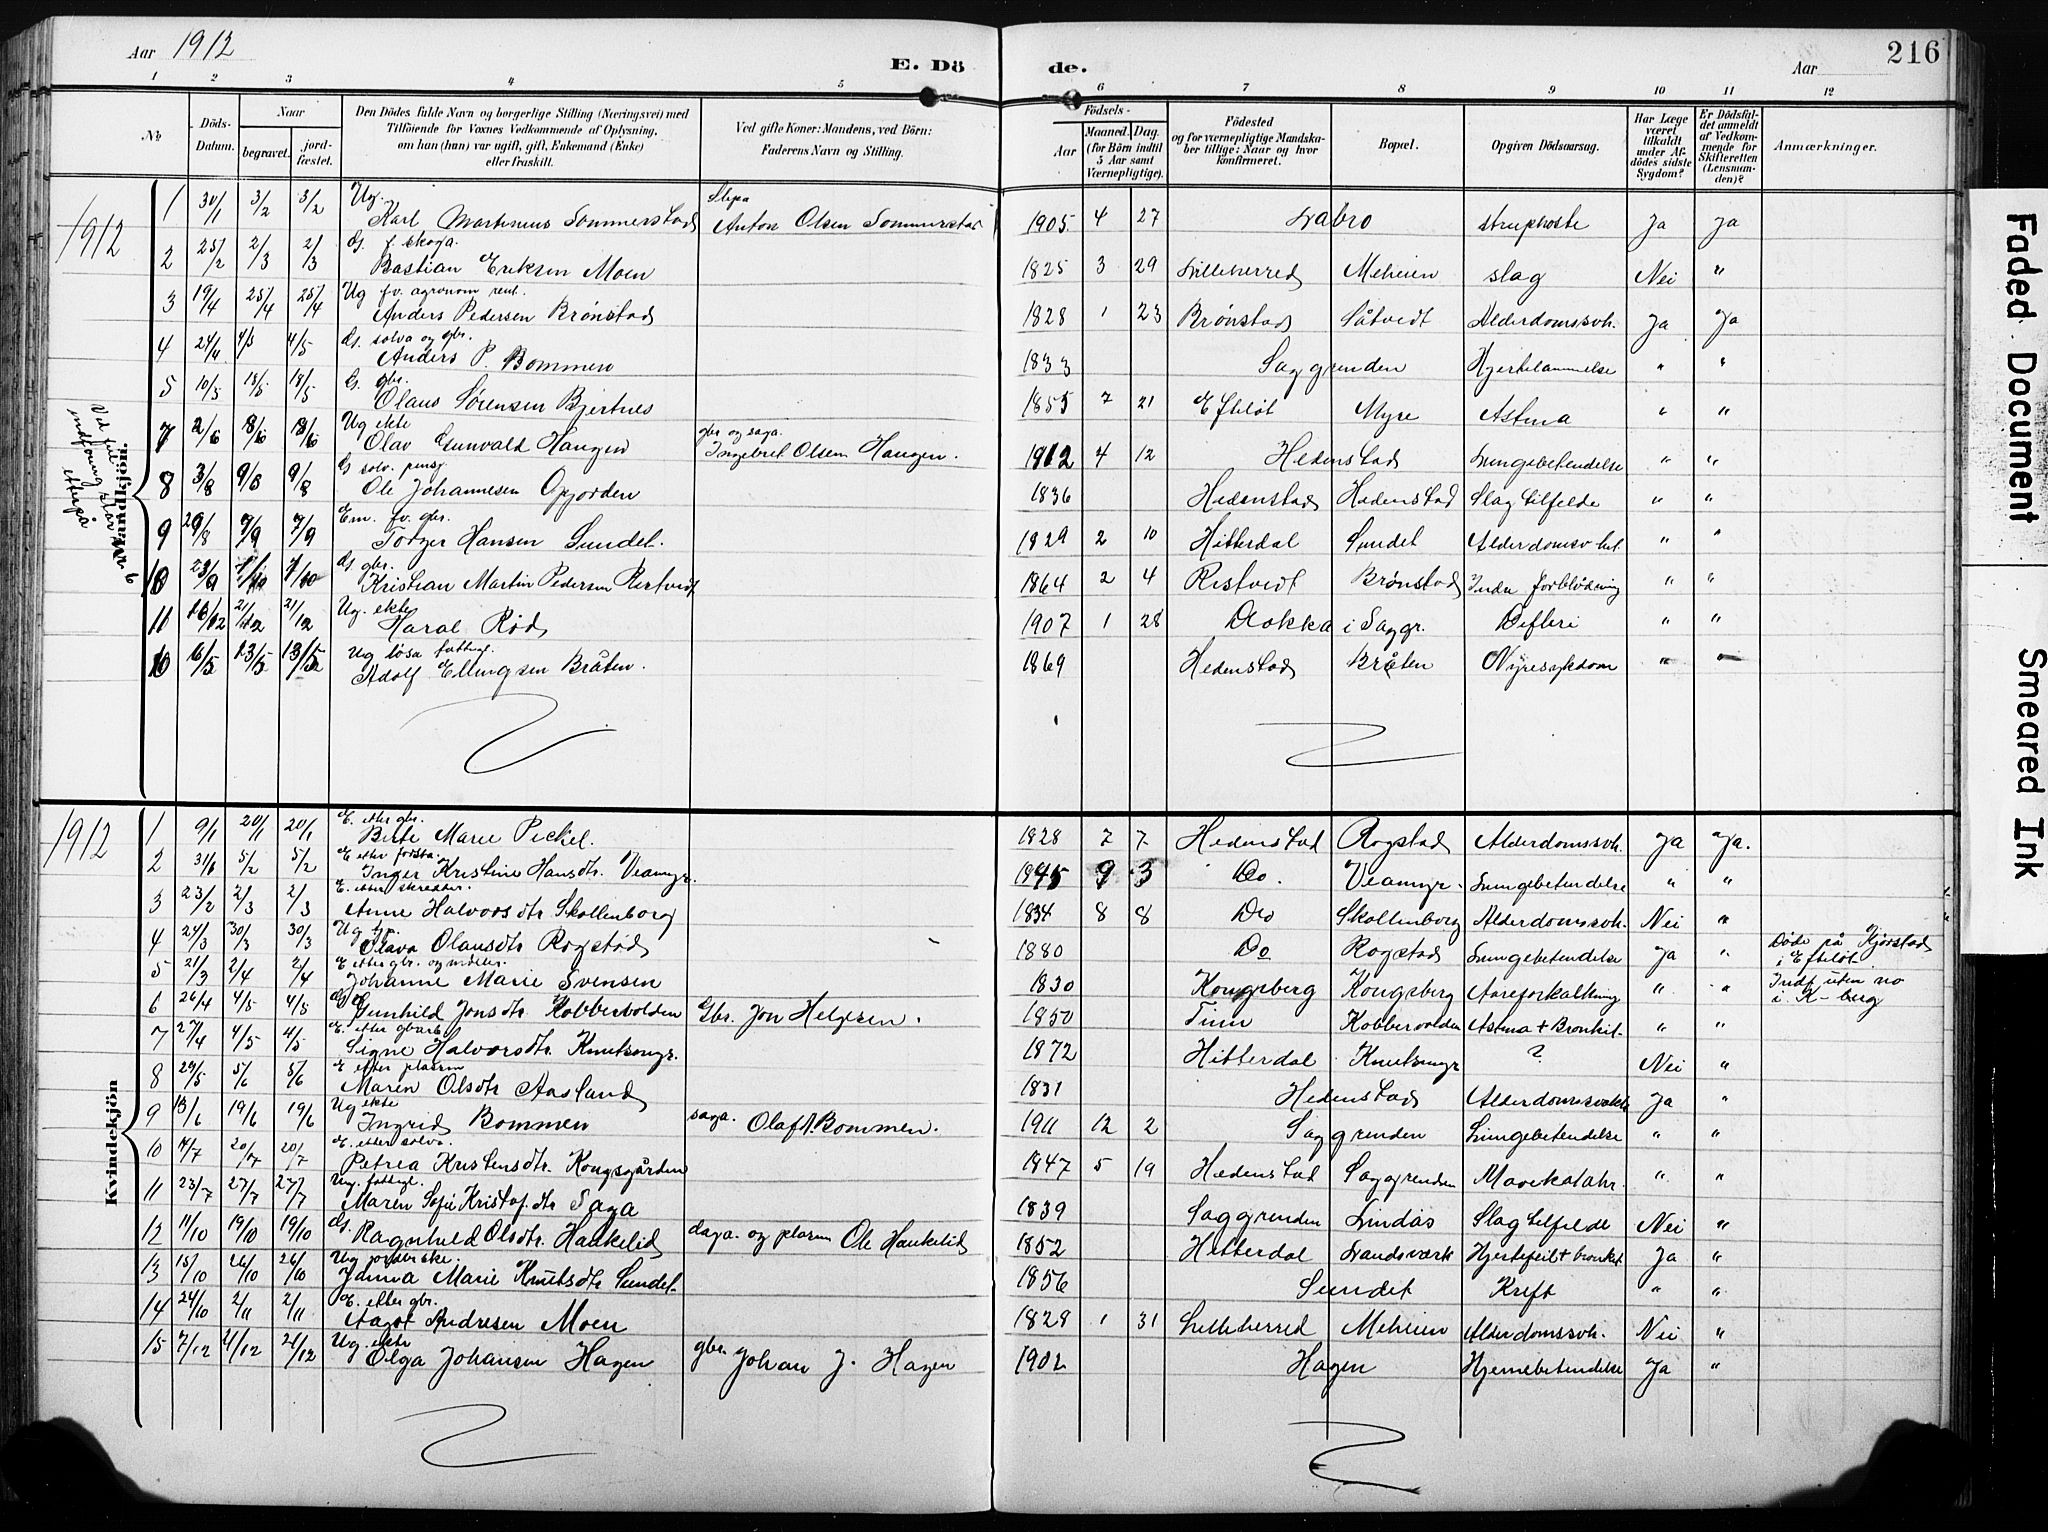 Aar 1912
E. Dö de.
Aar
216
1 2 3 4 5 6 7 8 9 10 11 12
No
Döds-Datum.
Naar
begravet.
jord-fæstet.
Den Dödes fulde Navn og borgerlige Stilling (Næringsvei) med
Tilföiende for Voxnes Vedkommende af Oplysning,
om han (hun) var ugift, gift, Enkemand (Enke)
eller fraskilt.
Ved gifte Koner: Mandens, ved Börn:
Faderens Navn og Stilling.
Födsels-
Aar
Maaned. Dag.
(for Börn indtil
5 Aar samt
Værnepligtige).
Födested
og for værnepligtige Mandska-
ber tillige: Naar og hvor
konfirmeret.
Bopæl.
Opgiven Dödsaarsag.
Har Læge
været
tilkaldt
under Af-
dödes sidste
Sygdom?
Er Dödsfal-
det anmeldt
af Vedkom-
mende for
Skifteretten
(Lensman-
den)?
Anmærkninger.
1912
Mandkjön.
1 30/1 3/2 3/2 Ug. Karl Martinius Sommerstad Anton Olsen Sommerstad 1905 4 27 Labro struphoste Ja Ja
2 25/2 2/3 2/3 G. f. skoga. Bastian Eriksen Moen 1825 3 29 Lilleherred Meheien slag Nei "
3 19/4 25/4 25/4 Ug fv. agronom rent. Anders Pedersen Brønstad 1828 1 23 Brønstad Såtvedt Alderdomssvh. Ja Ja
4 24/4 4/5 4/5 G. solva og gbr. Anders P. Bommen 1833 Saggrenden Hjertelammelse " "
5 10/5 18/5 18/5 G. gbr. Olaus Sørensen Bjertnes 1855 7 21 Efteløt Myre Astma " "
7 2/6 8/6 18/6 Ug ekte Olav Gunvald Haugen gbr og saga. Ingebret Olsen Haugen. 1912 4 12 Hedenstad Lungebetendelse " "
8 3/8 9/8 9/8 G solv. pensj. Ole Johannesen Opjorden 1836 Hedenstad Hedenstad Slagtilfelde " "
9 29/8 7/9 7/9 Em. fv. gbr. Torger Hansen Sundet. 1829 2 10 Hitterdal Sundet Alderdomsv " "
10 G. gbr. Kristian Martin Pedersen Ristvedt 1864 2 4 Ristvedt Brønstad Indre forblødning " "
11 21/12 21/12 Ug. ekte Haral Rød 1907 1 28 Dokka i Saggr. Difteri " "
6/5 13/5 13/5 Ug løsa fattigl. Adolf Ellingsen Bråten. 1869 Hedenstad Bråten Nyresykdom " "
1912
Kvindekjön
1 9/1 20/1 20/1 E. etter gbr. Birte Marie Pickel. 1828 7 7 Hedenstad Rogstad Alderdomssvh. Ja Ja.
2 5/2 5/2 E etter forsta Inger Kristine Hansdtr. Veamyr. 1845 9 3 Do. Veamyr. Lungebetendelse " "
3 23/2 2/3 2/3 E. etter skredder. Anne Halvorsdtr Skollenborg 1834 8 8 Do Skollenborg Alderdomssvh. Nei "
4 24/3 30/3 30/3 Ug. Olava Olausdtr Rogstad 1880 Do Rogstad Lungebetendelse Ja " Døde på Kjørstad i Efteløt
5 21/3 2/4 2/4 E etter gbr. og møller. Johanne Marie Svensen 1830 Kongsberg Kongsberg Aareforkalkning " " Indf uten no i K-berg
6 26/4 4/5 4/5 G Gunhild Jonsdtr Kobbervolden Gbr. Jon Helgesen. 1850 Tinn Kobbervolden Astma + Bronkit. " "
7 27/4 4/5 4/5 E. etter gbarb. Signe Halvorsdtr. Knutsmyr. 1872 Hitterdal Knutsmyr ? Nei "
8 29/5 5/6 5/6 E etter plassm Maren Olsdtr Aasland 1831 Hedenstad Alderdomssvakh Ja "
9 13/6 19/6 19/6 Ug ekte Ingrid Bommen saga. Olaf A. Bommen. 1911 12 2 Saggrenden Lungebetendelse " "
10 14/7 20/7 20/7 E. etter solva. Petrea Kristensdtr. Kongsgården 1847 5 19 Hedenstad Saggrenden Mavekatahr. " "
11 23/7 27/7 27/7 Ug. fattigl. Maren Sofie Kristofdtr Saga 1839 Saggrenden Lindås Slagtilfelde Nei "
12 11/10 19/10 19/10 G. Ragnhild Olsdtr. Haukelid daga. og plassm Ole Haukelid 1852 Hitterdal Landsværk Hjertefeil + bronkit Ja "
13 15/10 26/10 26/10 Ug jorderske. Marie Knutsdtr Sundet. 1856 Sundet Kreft " "
14 24/10 2/11 2/11 E. etter gbr. Aagot Andresen Moen 1829 1 31 Lilleherred Meheien Alderdomssvh. Nei "
15 7/12 21/12 21/12 Ug. ekte Olga Johansen Hagen gbr. Johan J. Hagen 1902 Hagen Hjernebetendelse Ja "
Faded Document
Smeared Ink